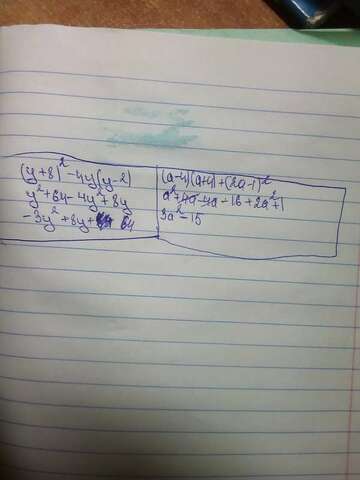 (y+8)² -4y(y-2)
y²+64-4y²+8y
-3y²+8y+64
(a-4)(a+4)+(2a-1)²
a²+4a-4a-16+2a²+1
3a²-15